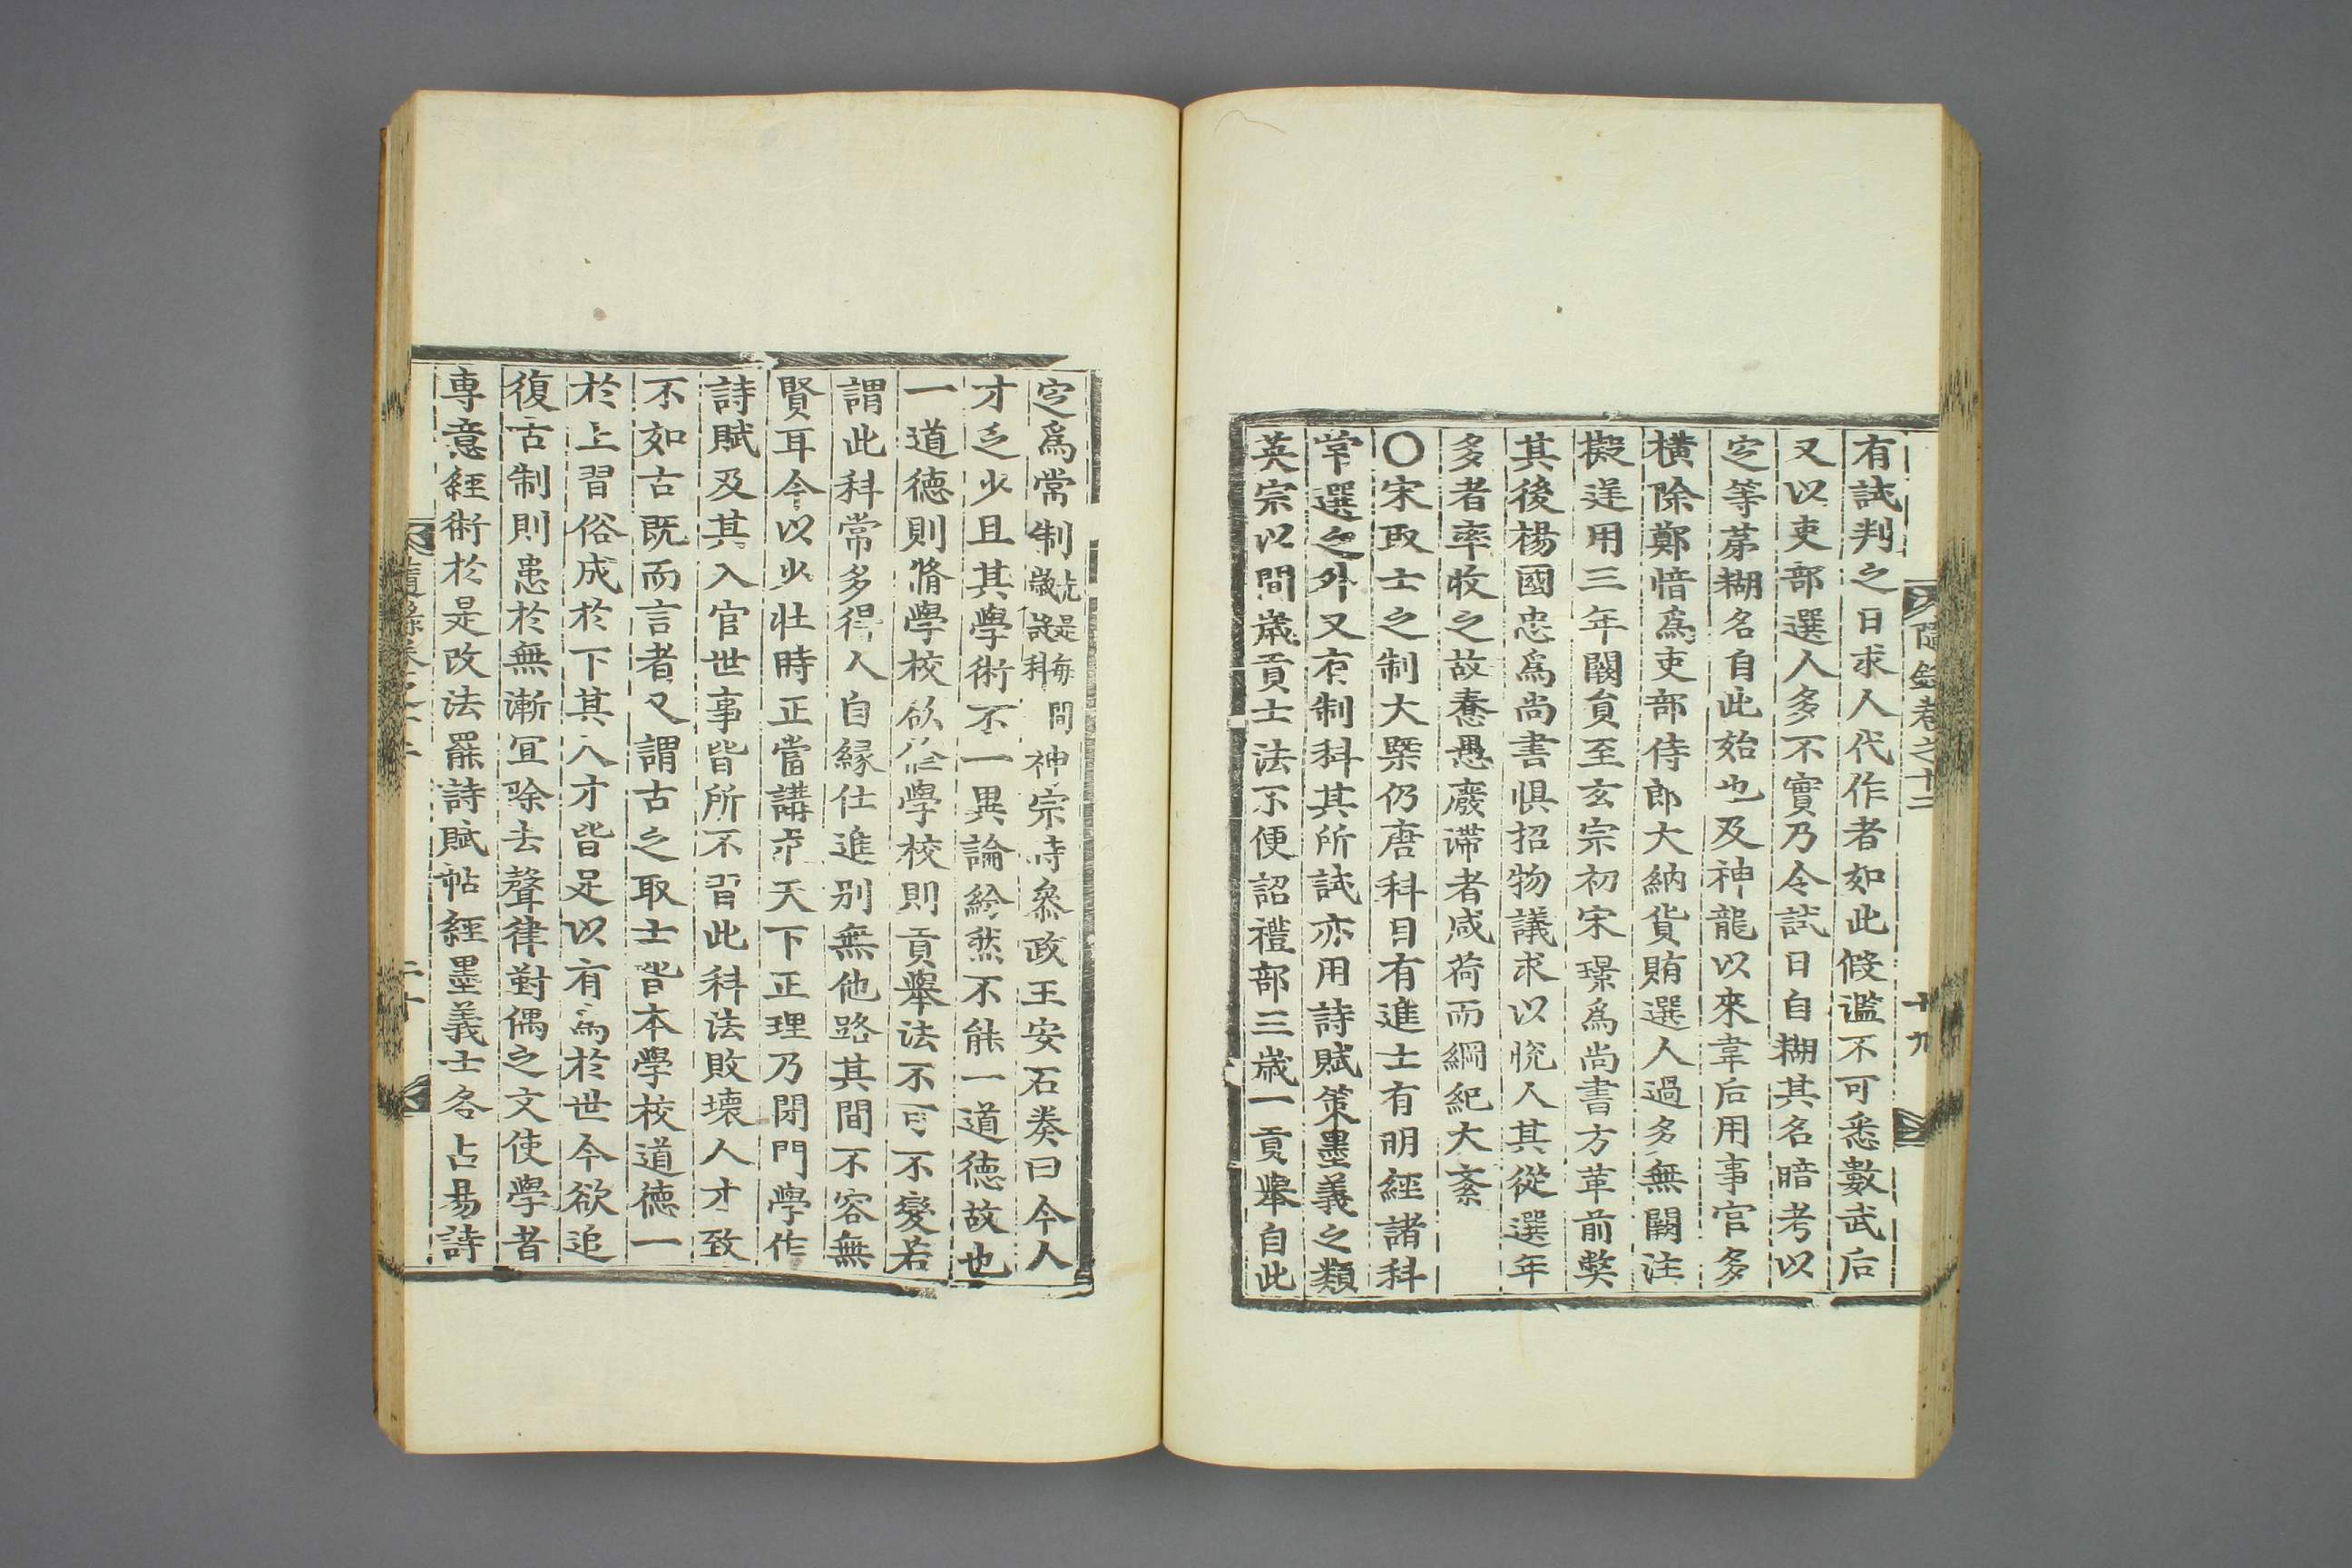 隨錄卷之十二
十九
有試判之日求人代作者如此假濫不可悉數武后
又以吏部選人多不實乃令試日自糊其名暗考以
定等苐糊名自此始也及神龍以來韋后用事官多
橫除鄭愔爲吏部侍郎大納貨賄選人過多無闕注
擬逆用三年闕員至玄宗初宋璟爲尚書方革前獘
其後楊國忠爲尚書惧招物議求以悅人其從選年
多者率收之故惷愚廢滯者咸荷而綱紀大紊
〇宋取士之制大槩仍唐科目有進士有明經諸科
常選之外又有制科其所試亦用詩賦策墨義之類
英宗以間歲貢士法不便詔禮部三歲一貢舉自此
定爲常制先是每間歲設科神宗時叅政王安石奏曰今人
才乏少且其學術不一異論紛然不能一道德故也
一道德則脩學校欲脩學校則貢舉法不可不變若
謂此科常多得人自緣仕進別無他路其間不容無
賢耳今以少壯時正當講求天下正理乃閉門學作
詩賦及其入官世事皆所不習此科法敗壞人才致
不如古既而言者又謂古之取士皆本學校道德一
於上習俗成於下其人才皆足以有爲於世今欲追
復古制則患於無漸宜除去聲律對偶之文使學者
専意經術於是改法罷詩賦帖經墨義士各占易詩
二十